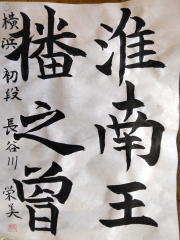 淮南王
播之曾
横浜 初段 長谷川 栄美